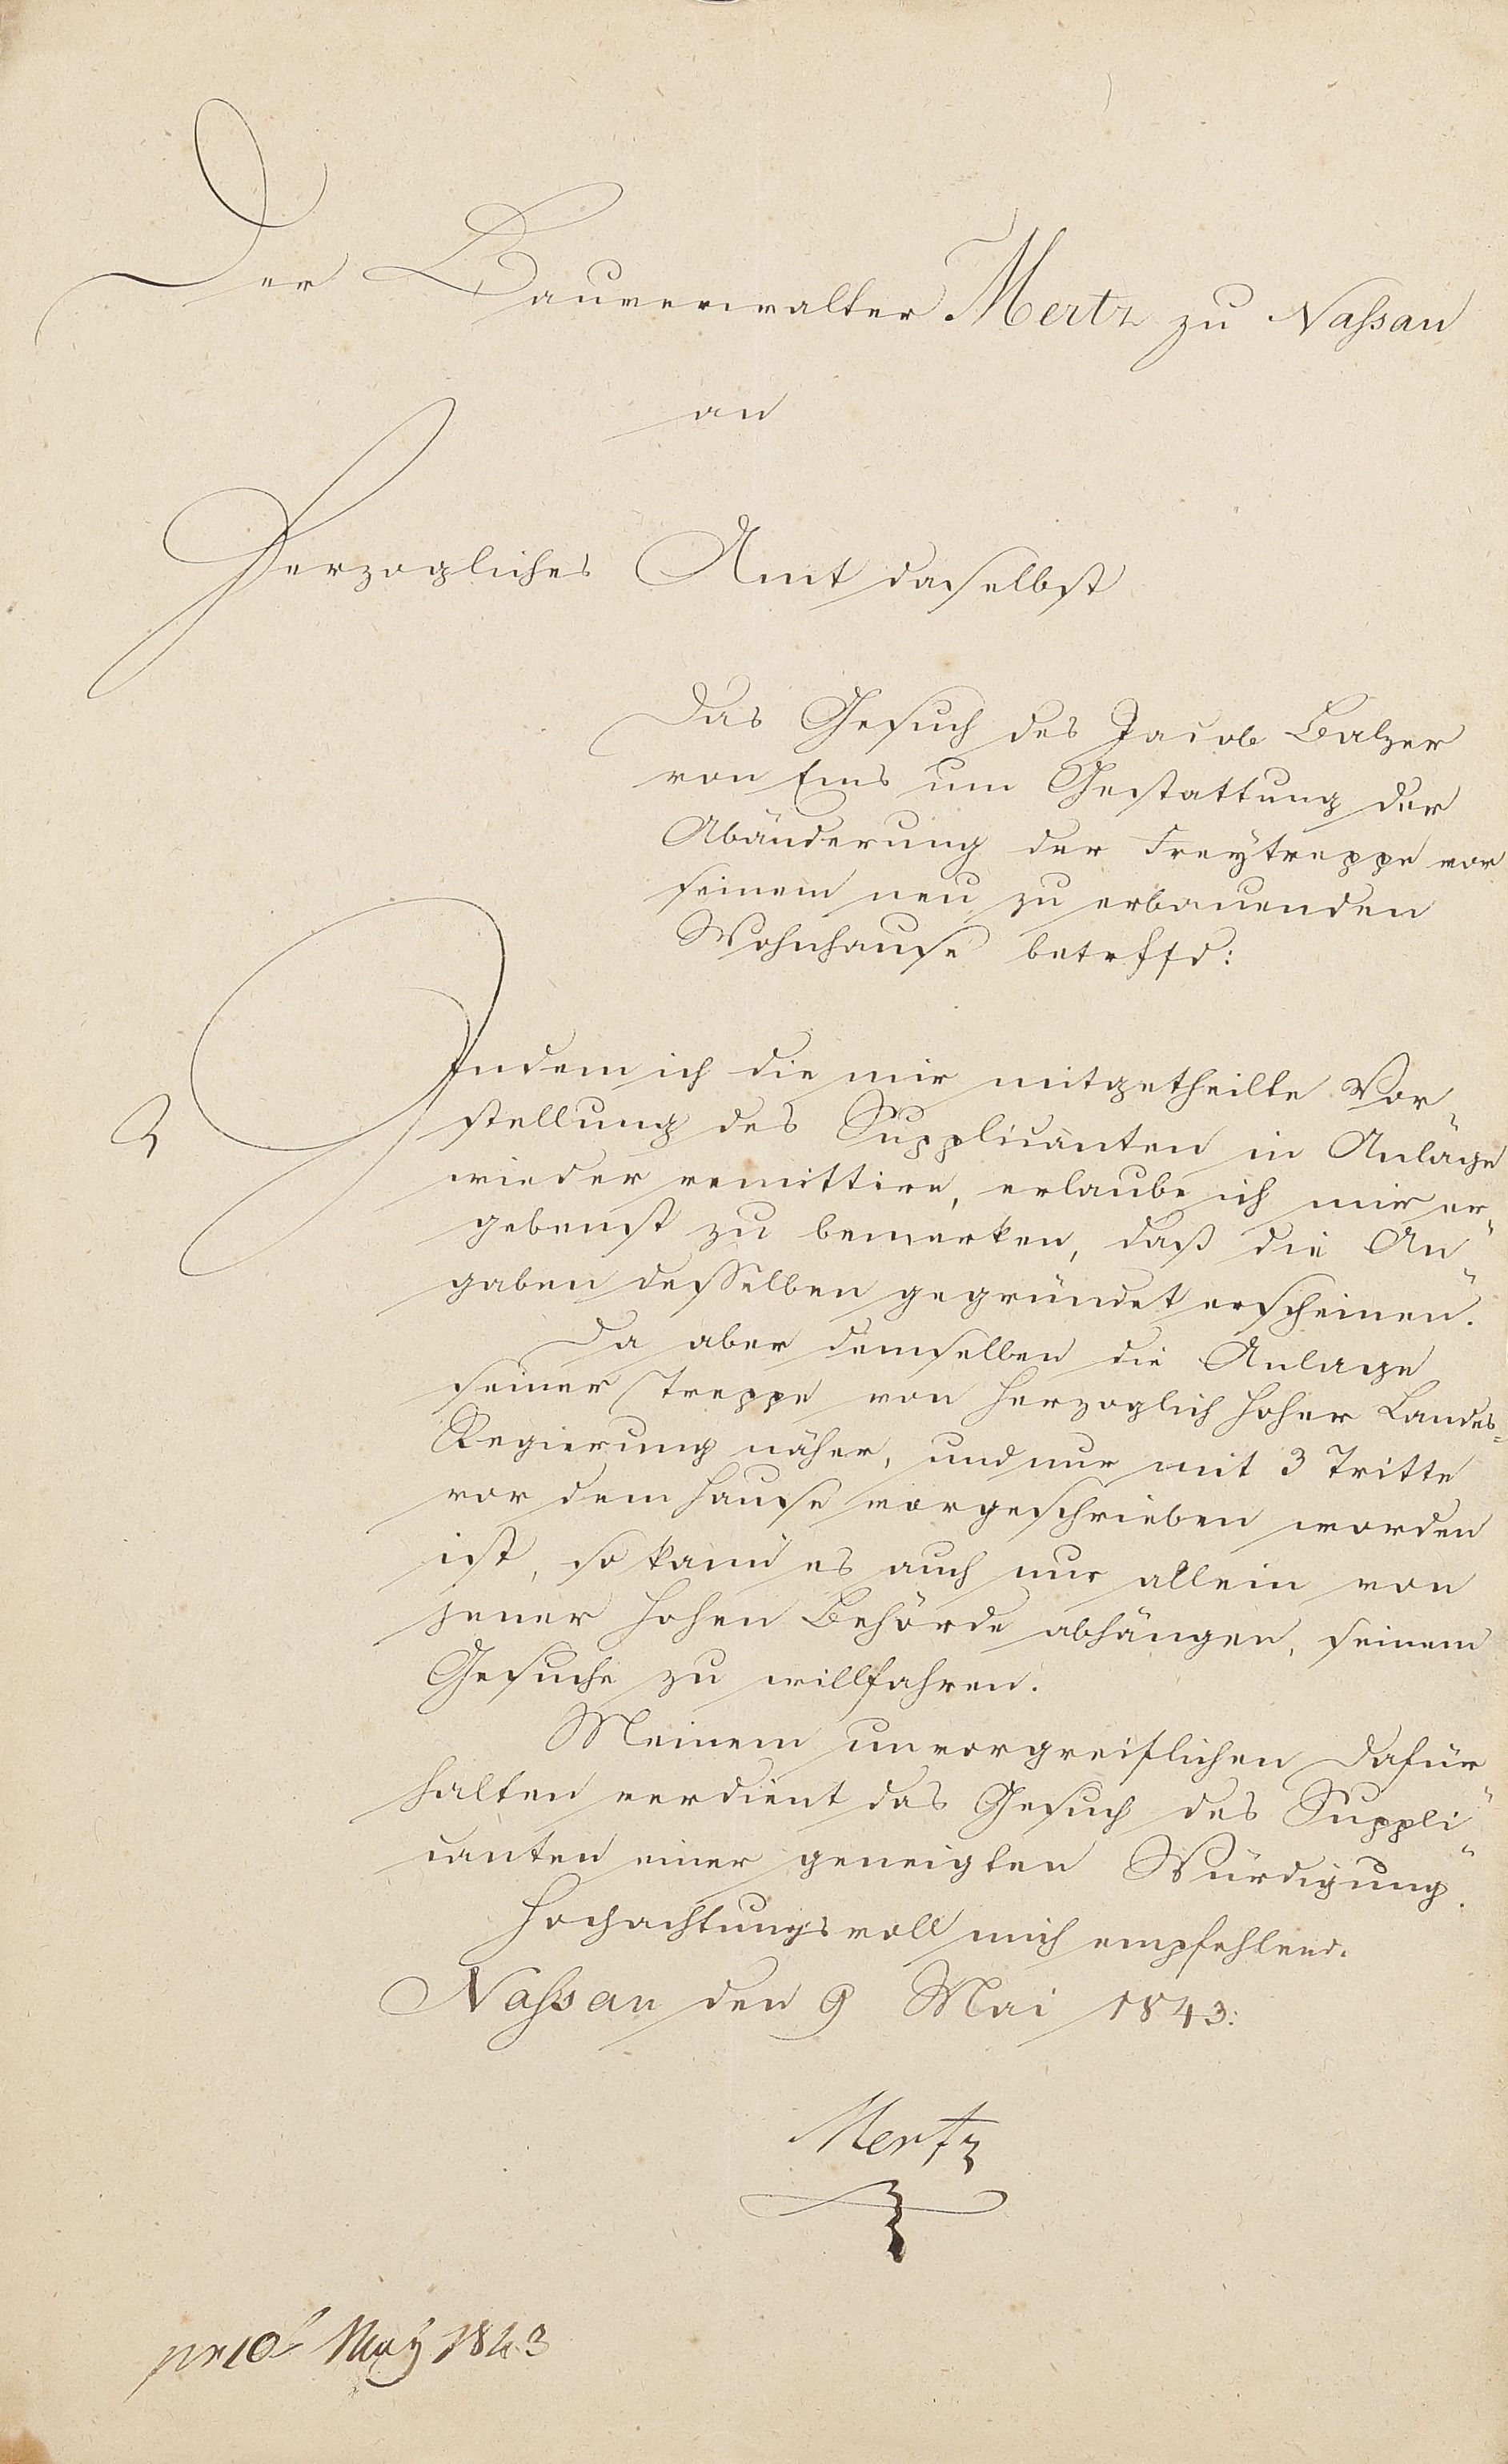 Der Bauverwalter Mertz zu Nassau
an
Herzogliches Amt daselbst
Das Gesuch des Jacob Balzer
von Ems um Gestattung der
Abänderung der Freytreppe vor
seinem neu zu erbauenden
Wohnhause betrffd:
Indem ich die mir mitgetheilte Vor-
stellung des Supplicanten in Anlage
wieder remittire, erlaube ich mir er-
gebenst zu bemerken, daß die An-
gaben desselben gegründet erscheinen.
Da aber demselben die Anlage
seiner Treppe von Herzoglich Hoher Landes-
Regierung näher, und nur mit 3 Tritte
vor dem Hause vorgeschrieben worden
ist, so kann es auch nur allein von
jener hohen Behörde abhängen, seinem
Gesuche zu willfahren.
Meinem unvorgreiflichen Dafür-
halten verdient das Gesuch des Suppli-
canten einer geneigten Würdigung.
Hochachtungsvoll mich empfehlend.
Nassau den 9 Mai 1843:
Mertz
pr 10 May 1843